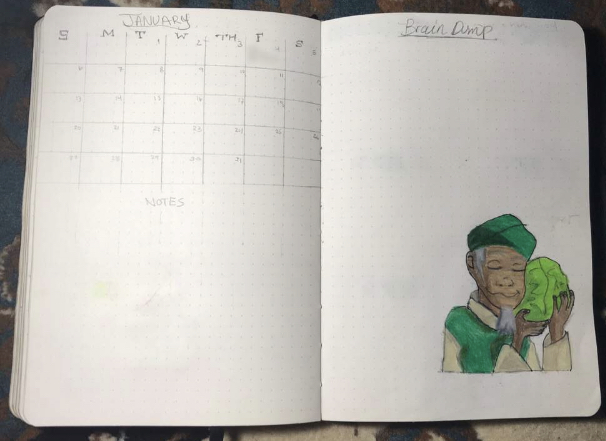 JANUARY
S M T W TH F S
1 2 3
6 7 8 9 10 11
13 14 15 16 17 18
20 21 22 23 24 25
27 28 29 30 31
NOTES
Brain Dump